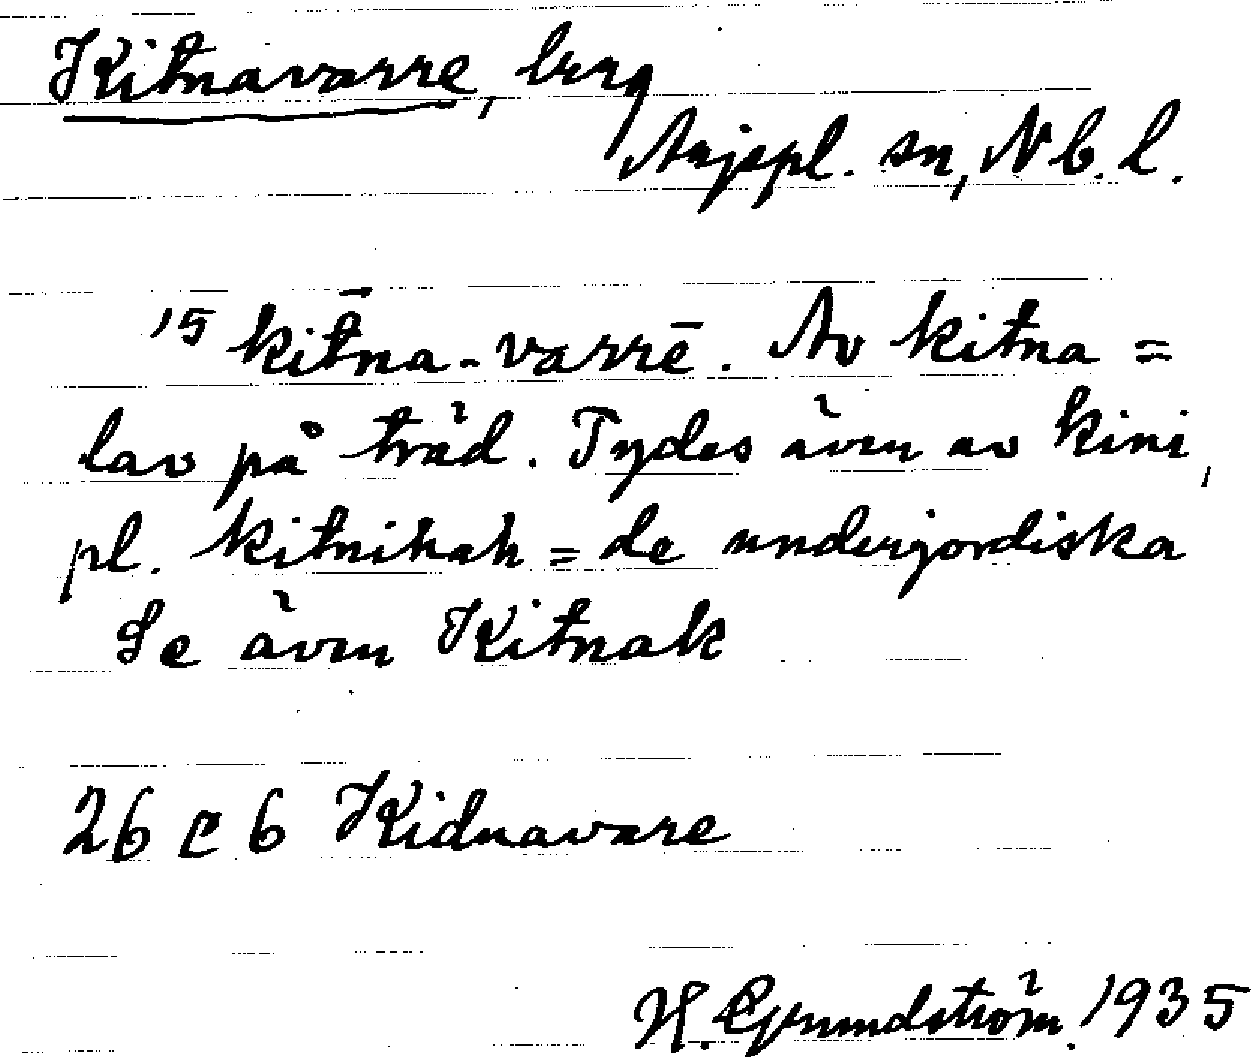 Kitnavarre, berg
Arjepl. sn, Nb. l.
15 kit̄na-varrē. Av kitna =
lav på träd. Tydes även av kini,
pl. kitnihah = de underjordiska
Se även Kitnak
26 C 6 Kidnavare
H. Grundström. 1935